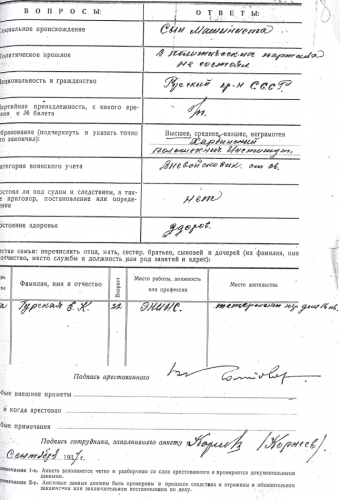 ВОПРОСЫ: ОТВЕТЫ:
Социальное происхождение Сын машиниста
Политическое прошлое В политических партиях не состоял
Национальность и гражданство Русский гр-н СССР
Партийная принадлежность, с какого времени и № билета
Образование (подчеркнуть и указать точно что закончил): Высшее, среднее, низшее, неграмотен
Харбинский Институт.
Категория воинского учета
Состоял ли под судом и следствием, а также приговор, постановление или определение нет
Состояние здоровья здоров.
Состав семьи: перечислить отца, мать, сестер, братьев, сыновей и дочерей (их фамилия, имя
и отчество, место службы и должность или род занятий и адрес):
Фамилия, имя и отчество Возраст Место работы, должность или профессия Место жительства
Гурская Е. К. 22
Подпись арестованного
Особые внешние приметы
и когда арестован
Особые примечания
Подпись сотрудника, заполнявшего анкету (Корнеев)
Сентября 1937 г.
Примечание 1-е. Анкета заполняется четко и разборчиво со слов арестованного и проверяется документальными
данными.
Примечание 2-е. Анкетные данные должны быть проверены в процессе следствия и отражены в обвинительном
заключении или заключительном постановлении по делу.